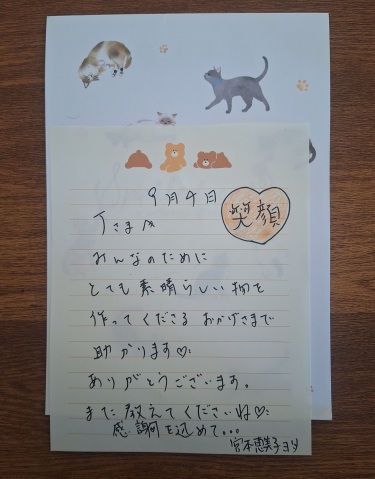 9月4日
笑顔
Tさまへ
みんなのために
とても素晴らしい物を
作ってくださるおかげさまで
助かります♡
ありがとうございます。
また教えてくださいね♡
感謝を込めて...
宮本恵美子ヨリ